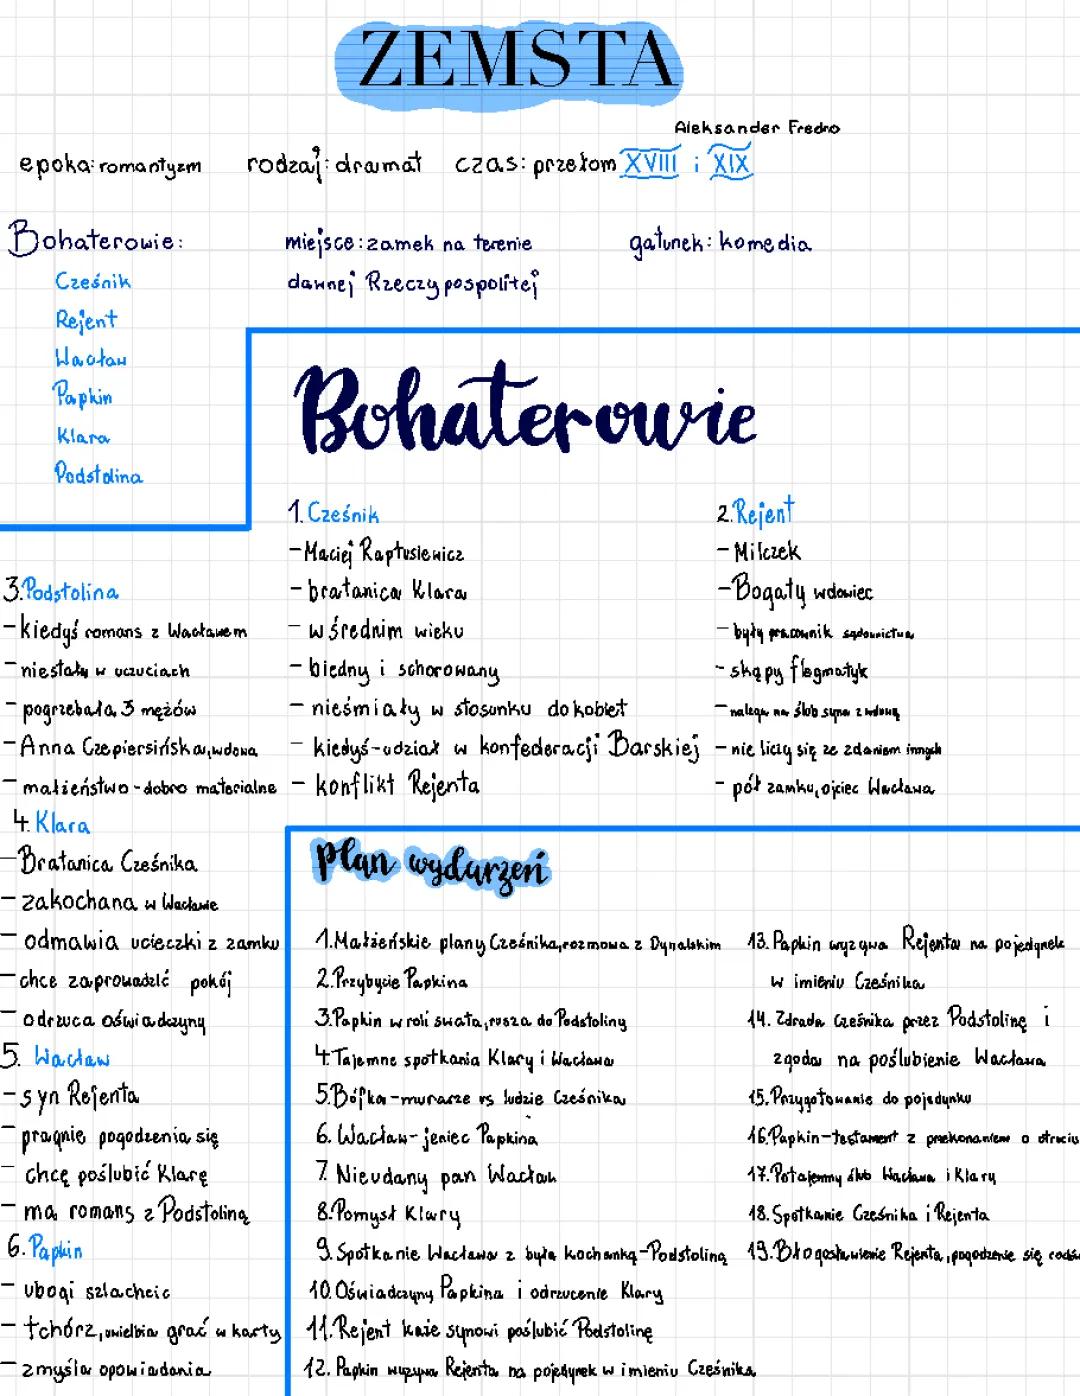 ZEMSTA
Aleksander Fredro
epoka: romantyzm rodzaj: dramat czas: przełom XVIII i XIX
Bohaterowie:
Cześnik
Rejent
Wacław
Papkin
Klara
Podstolina
miejsce: zamek na terenie
dawnej Rzeczypospolitej
gatunek: komedia
Bohaterowie
1. Cześnik
- Maciej Raptusiewicz
- bratanica Klara
- w średnim wieku
- biedny i schorowany
- nieśmiały w stosunku do kobiet
- kiedyś - udział w konfederacji Barskiej
- konflikt Rejenta
2. Rejent
- Milczek
- Bogaty wdowiec
- były pracownik sądownictwa
- skąpy flegmatyk
- nalega na ślub syna z wdową
- nie liczy się ze zdaniem innych
- pół zamku, ojciec Wacława
3. Podstolina
- kiedyś romans z Wacławem
- niestały w uczuciach
- pogrzebała 3 mężów
- Anna Czepiersińska, wdowa
- małżeństwo - dobro materialne
4. Klara
- Bratanica Cześnika
- zakochana w Wacławie
- odmawia ucieczki z zamku
- chce zaprowadzić pokój
- odrzuca oświadczyny
5. Wacław
- syn Rejenta
- pragnie pogodzenia się
- chcę poślubić Klarę
- ma romans z Podstoliną
6. Papkin
- ubogi szlachcic
- tchórz, uwielbia grać w karty
- zmyśla opowiadania
plan wydarzeń
1. Małżeńskie plany Cześnika, rozmowa z Dynalskim
2. Przybycie Papkina
3. Papkin w roli swata, rusza do Podstoliny
4. Tajemne spotkania Klary i Wacława
5. Bójka - murarze vs ludzie Cześnika
6. Wacław - jeniec Papkina
7. Nieudany pan Wacław
8. Pomysł Klary
9. Spotkanie Wacława z była kochanką - Podstoliną
10. Oświadczyny Papkina i odrzucenie Klary
11. Rejent każe synowi poślubić Podstolinę
12. Papkin wyzywa Rejenta na pojedynek w imieniu Cześnika
13. Papkin wyzywa Rejenta na pojedynek
w imieniu Cześnika
14. Zdrada Cześnika przez Podstolinę i
zgoda na poślubienie Wacława
15. Przygotowanie do pojedynku
16. Papkin - testament z przekonaniem o otruciu
17. Potajemny ślub Wacława i Klary
18. Spotkanie Cześnika i Rejenta
19. Błogosławienie Rejenta, pogodzenie się